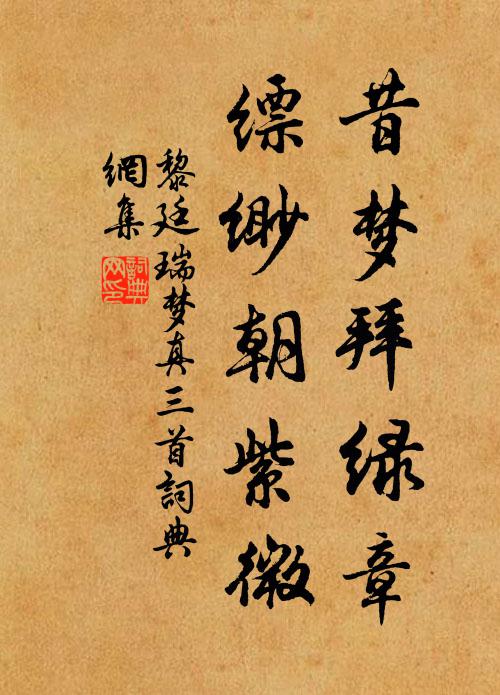 昔梦拜绿章
缥缈朝紫微
黎廷瑞梦真三首詞典
網集
詞典
网印